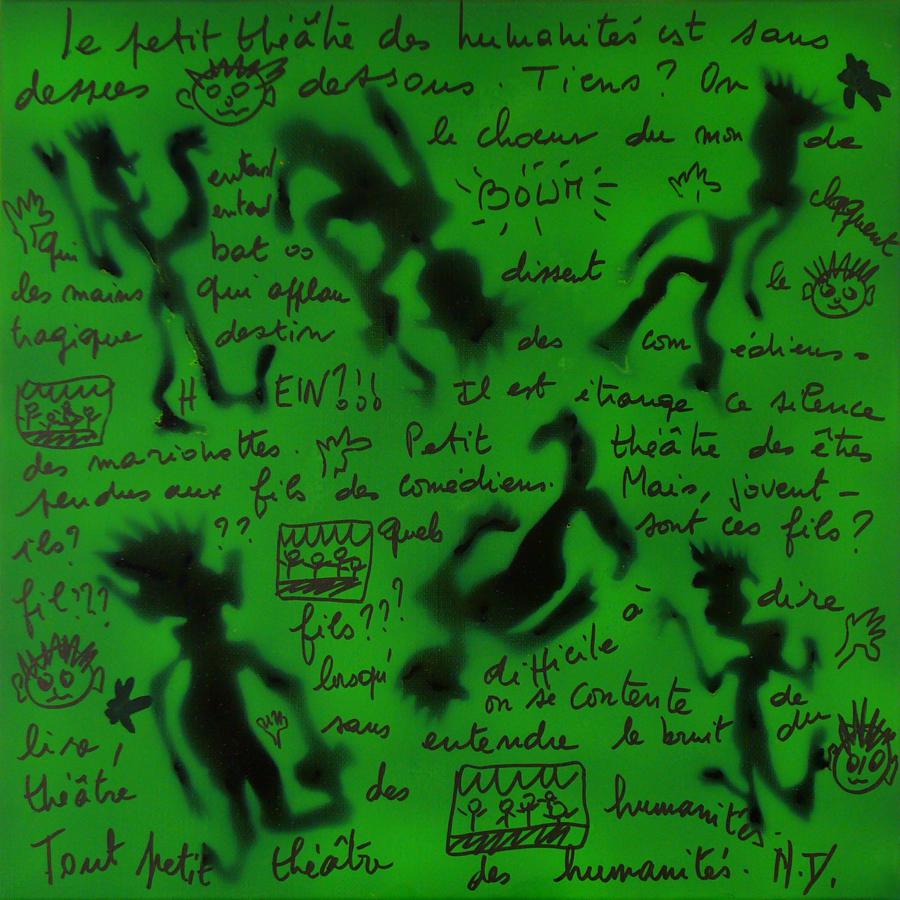 le petit théâtre des humanités est sans
dessus dessous. Tiens? On
le choeur du mon de
entend
entend
BOUM
claquent
qui bat oo dissent le
les mains qui applau
tragique destin des com édiens.
H EIN?!!! Il est étrange ce silence
des marionnettes. Petit théâtre des êtres
pendus aux fils des comédiens. Mais, jouent-
ils? ?? quels sont ces fils?
fil??? fils??? à dire
lorsqu' difficile à
on se contente de
lire, sans entendre le bruit du
théâtre des humanités.
Tout petit théâtre des humanités. N.D.